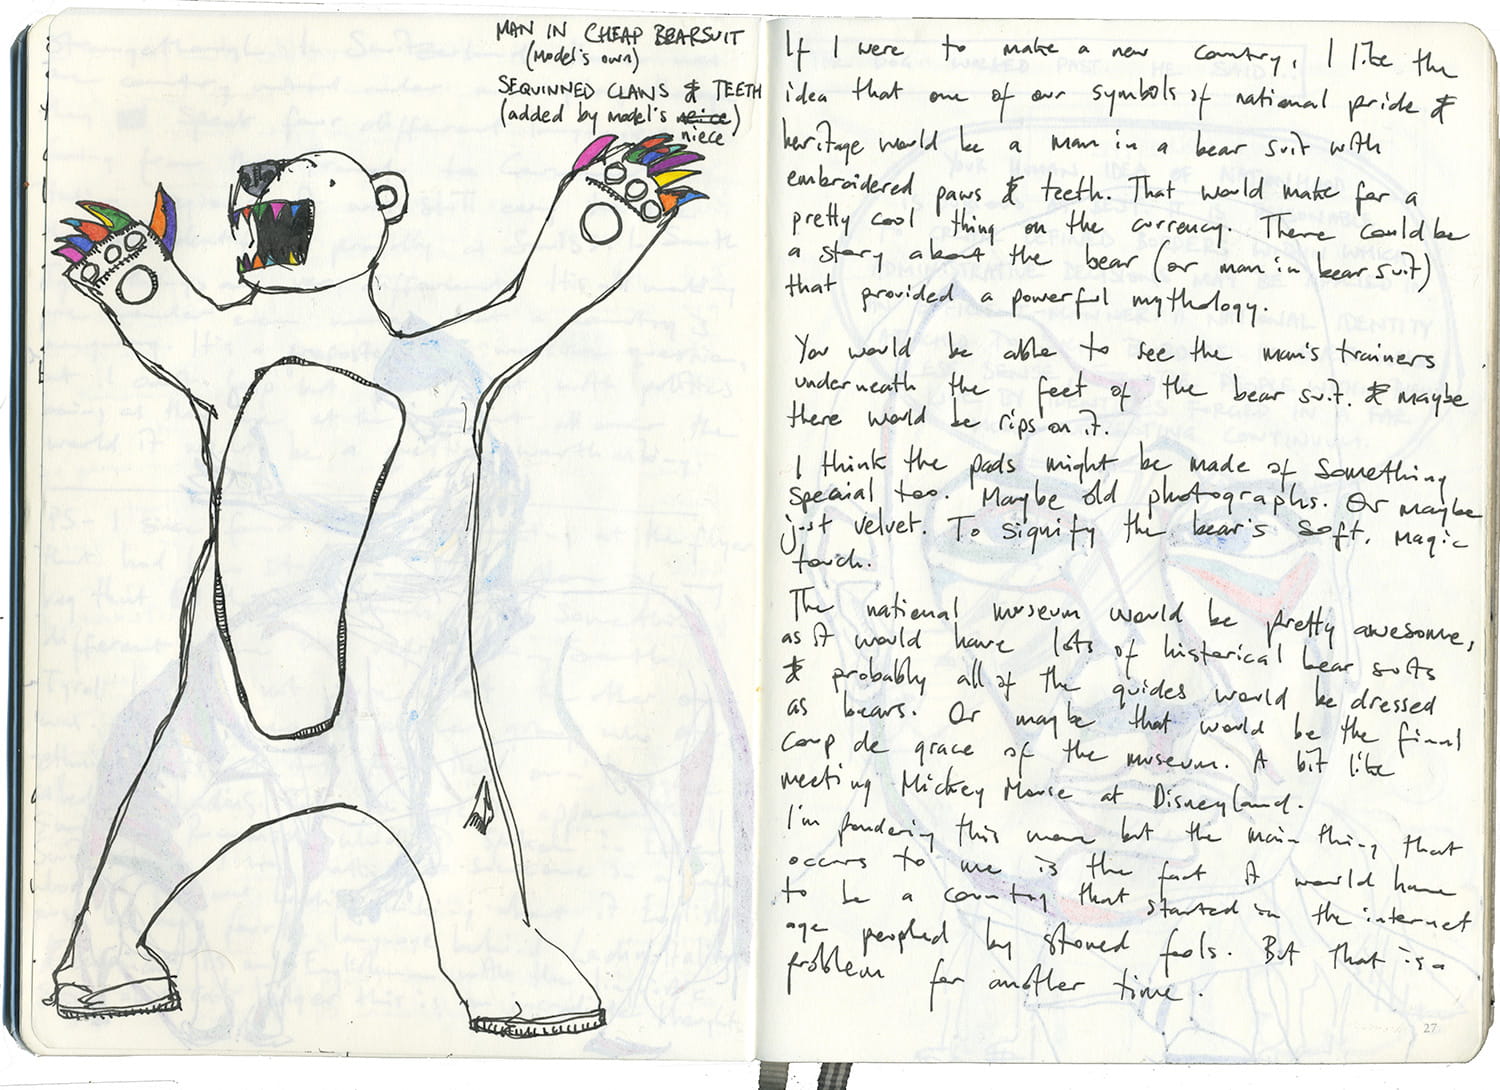 MAN IN CHEAP BEARSUIT
(Model's own)
SEQUINNED CLAWS & TEETH
(added by model's neice)
niece
If I were to make a new country, I like the
idea that one of our symbols of national pride &
heritage would be a man in a bear suit with
embroidered paws & teeth. That would make for a
pretty cool thing on the currency. There could be
a story about the bear (or man in bear suit)
that provided a powerful mythology.
You would be able to see the man's trainers
underneath the feet of the bear suit. & maybe
there would be rips on it.
I think the pads might be made of something
special too. Maybe old photographs. Or maybe
just velvet. To signify the bear's soft, magic
touch.
The national museum would be pretty awesome,
as it would have lots of historical bear suits
& probably all of the guides would be dressed
as bears. Or maybe that would be the final
coup de grace of the museum. A bit like
meeting Mickey Mouse at Disneyland.
I'm pondering this more but the main thing that
occurs to me is the fact it would have
to be a country that started in the internet
age peopled by stoned fools. But that is a
problem for another time.
27